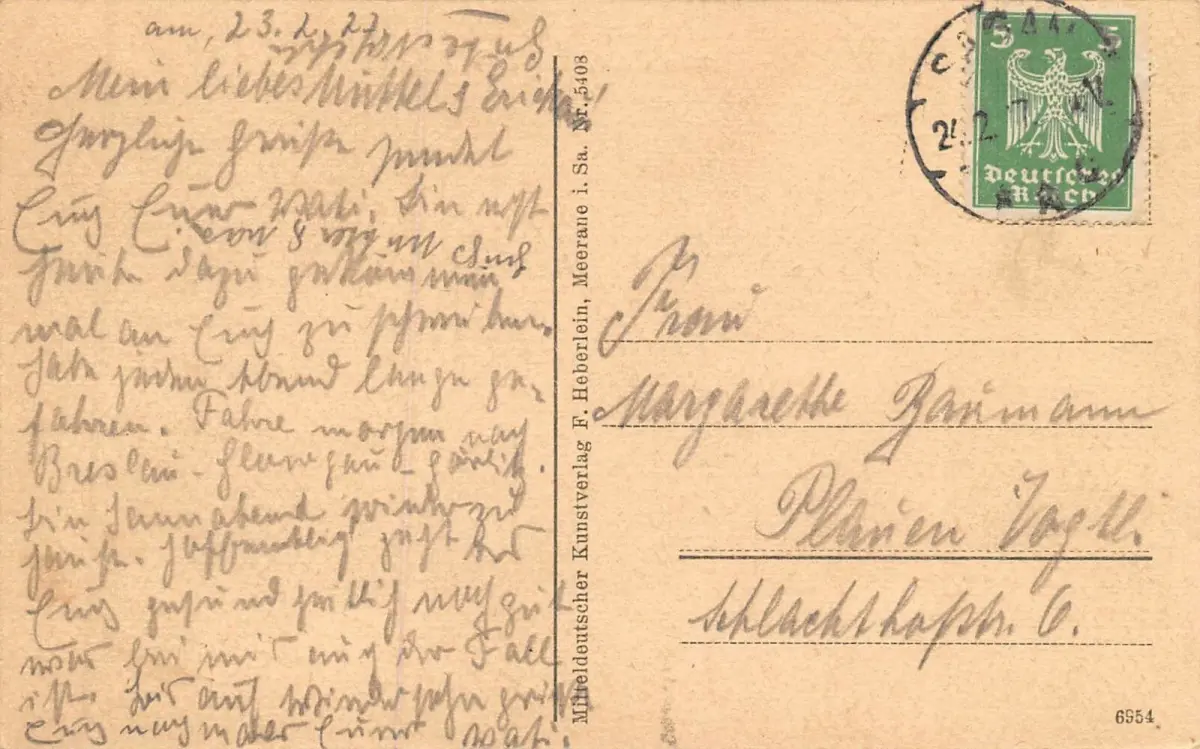 am, 23.2.27
Mein liebes Muttel & Erich!
Herzliche Grüße sendet
Euch Euer Vati. Bin erst
heute dazu gekommen Euch
mal an Euch zu schreiben.
Habe jeden Abend lange ge-
fahren. Fahre morgen nach
Breslau - Glogau - Görlitz.
bin Sonnabend wieder zu
Hause. Hoffentlich geht es
Euch gesundheitlich noch gut
was bei mir auch der Fall
ist. Bis auf Wiedersehn grüßt
Euch nochmals Euer Vati.
Mitteldeutscher Kunstverlag F. Heberlein, Meerane i. Sa. Nr. 5408
SAGAN
5 5
Deutsches
Reich
Frau
Margarethe Baumann
Plauen Vogtl.
Schlachthofstr. 6.
6954